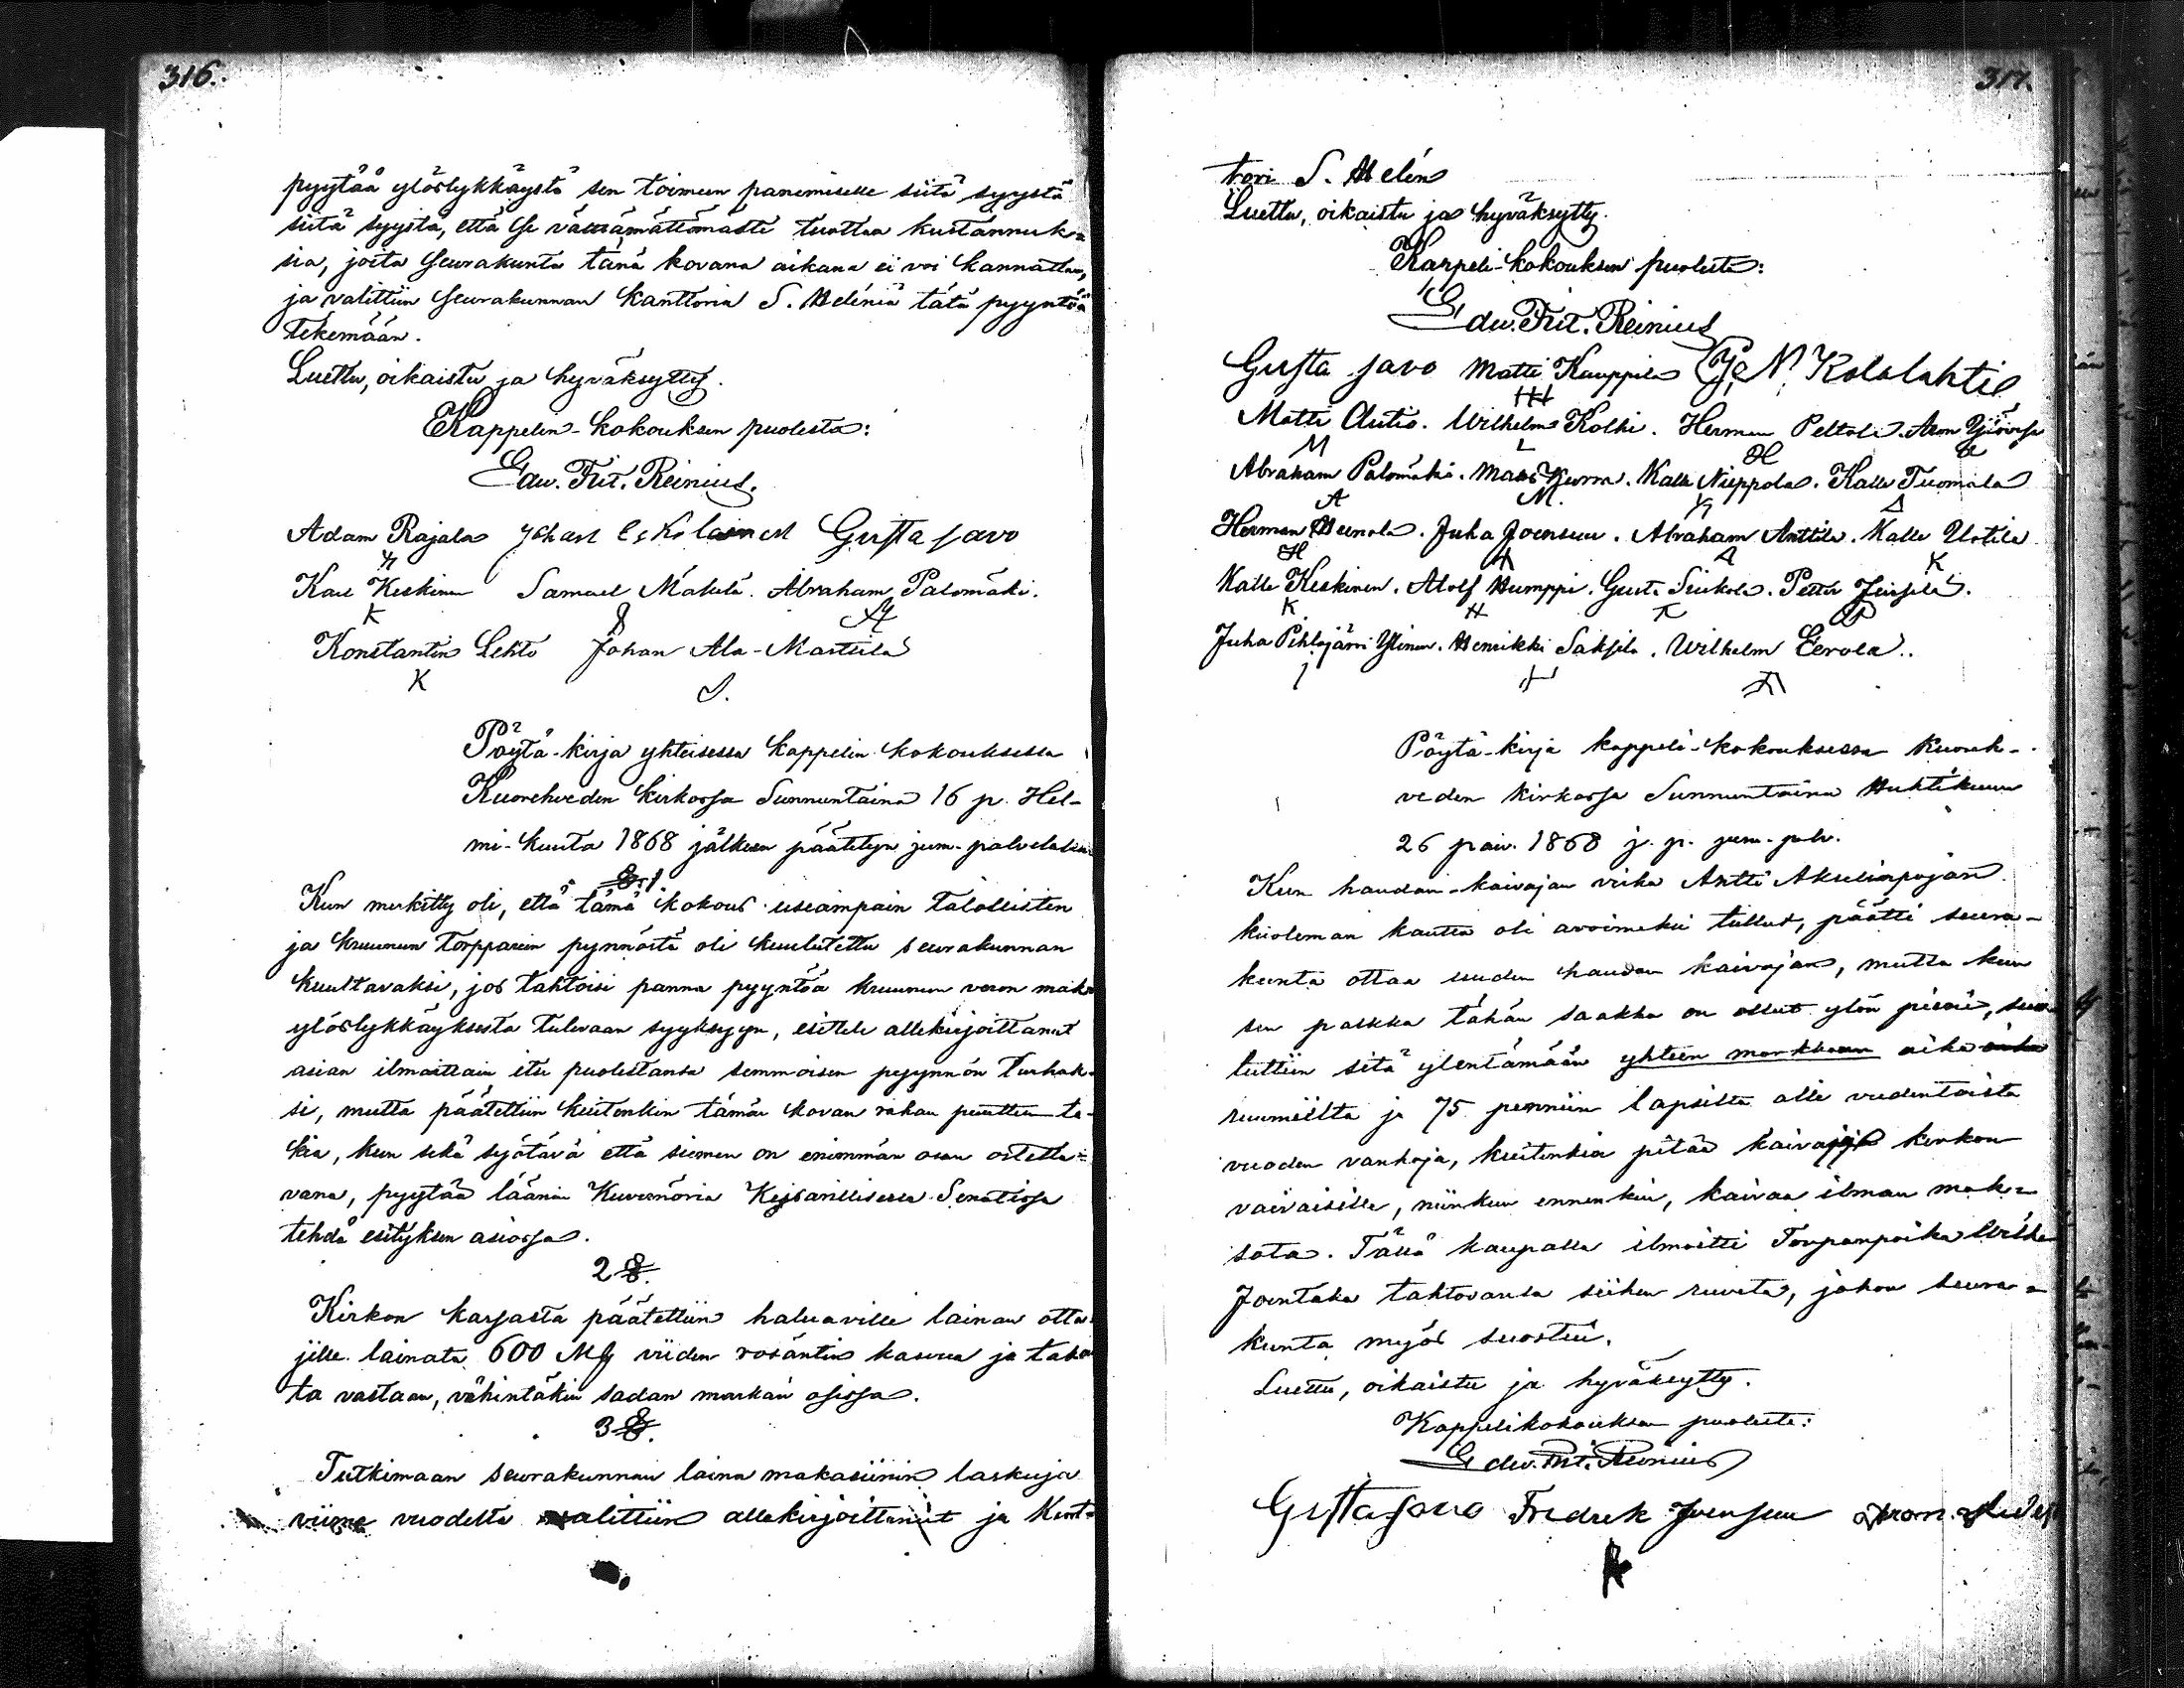 316.
pyytää ylöslykkäystä sen toimeen panemiselle siitä syystä
siitä syystä, että se välttämättömästi tuottaa kustannuk-
sia, joita seurakunta tänä kovana aikana ei voi kannattaa,
ja valittiin seurakunnan kanttoria S. Heléniä tätä pyyntöä
tekemään.
Luettu, oikaistu ja hyväksytty.
Kappelin-kokouksen puolesta:
Edw. Frit. Reinius.
Adam Rajala Johan Eskolainen Gusta Savo
Karl Keskinen Samuel Mäkelä. Abraham Palomäki.
K
Konstantin Lehto Johan Ala-Marttila
K
Pöytä-kirja yhteisessa kappelin kokouksessa
Kuorehveden kirkossa Sunnuntaina 16 p. Hel-
mi-kuuta 1868 jälkeen päätetyn jum. palveluksen
§. 1
Kun merkitty oli, että tämä kokous useampain talollisten
ja kruunun torpparein pynnöstä oli kuulutettu seurakunnan
kuultavaksi, jos tahtoisi panna pyyntöä kruunun veron mak
ylöslykkäyksestä tulevaan syyksyyn, esitteli allekirjoittanut
asian ilmoittain itse puolestansa semmoisen pyynnön turhak-
si, mutta päätettiin kuitenkin tämän kovan rahan puutteen ta-
kia, kun sekä syötävä että siemen on enimmän osan ostetta-
vana, pyytää läänin Kuvernöria Keisarillisessa Senatissa
tehdä esityksen asiossa.
2 §.
Kirkon kassasta päätettiin haluaville lainan otta
jille lainata 600 Mk viiden rosäntin kasvua ja taka
ta vastaan, vähintäkin sadan markan osissa.
3 §.
Tutkimaan seurakunnan laina makasiinin laskuja
viime vuodelta valittiin allekirjoittanut ja Kant-
317.
tori S. Helén
Luettu, oikaistu ja hyväksytty.
Kappeli-kokouksen puolesta:
Edw. Frit. Reinius
Gusta Savo Matti Kauppila Kolulahti
Matti Autio. Wilhelm Kolhi. Herman Peltola. Aron
M H
Abraham Palomäki. Matti Kurra. Kalle Nieppola. Kalle Tuomala
A M.
Herman Heinola. Juha Joensuu. Abraham Anttila. Kalle Uotila
H K
Kalle Keskinen. Adolf Humppi. Gusta Siukola. Petter
K H P
Juha Pihlajärvi Ylinen. Henrikki Saksila. Wilhelm Eerola.
Pöytä-kirja kappeli-kokouksessa Kuoreh-
veden kirkossa Sunnuntaina Huhtikuun
26 päiv. 1868 j. p. jum. palv.
Kun haudan-kaivajan virka Antti Akselinpojan
kuoleman kautta oli avoimeksi tullut, päätti seura-
kunta ottaa uuden haudan kaivajan, mutta kun
sen palkka tähän saakka on ollut ylön pieni,
tuttiin sitä ylentämään yhteen markkaan aika
ruumiilta ja 75 penniin lapsilta alle viidentoista
vuoden vanhoja, kuitenkin pitää kaivajan kirkon
vaivaisille, niinkun ennenkin, kaivaa ilman mak-
sota. Tällä kaupalla ilmoitti Torpanpoika Wilhe
Joentaka tahtovansa siihen ruveta, johon seura-
kunta myös suostui.
Luettu, oikaistu ja hyväksytty.
Kappelikokouksen puolesta:
Edw. Frit. Reinius
Gusta Savo Fredrek Joensuu